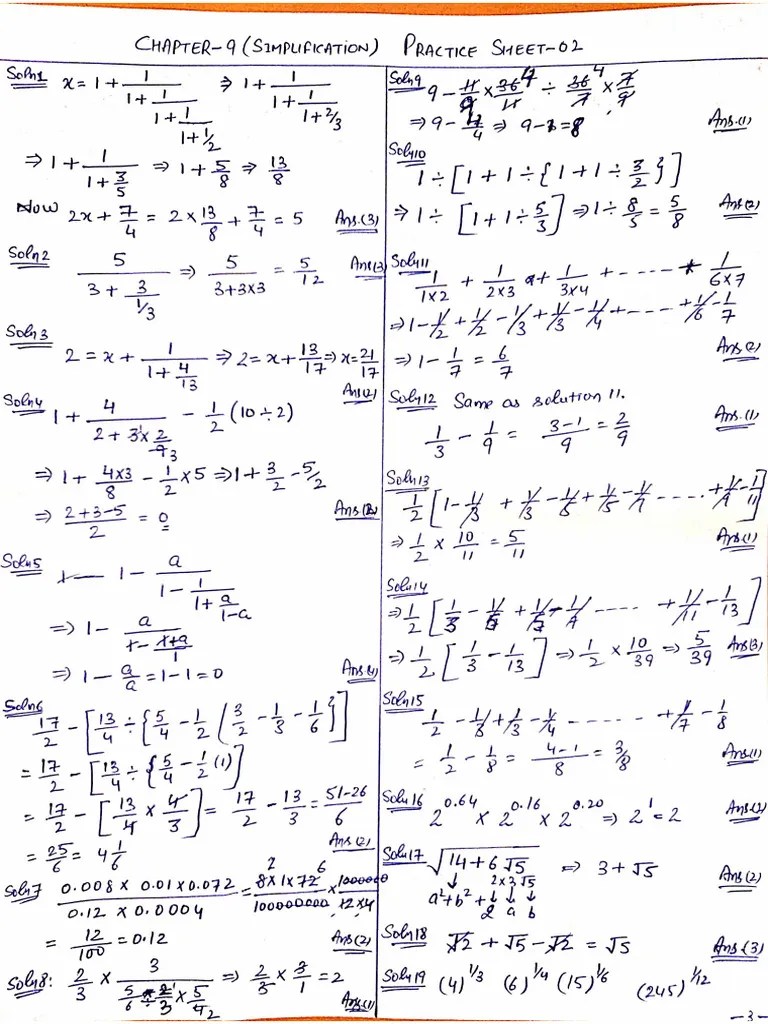 CHAPTER-9 (SIMPLIFICATION) PRACTICE SHEET-02
Soln1 x = 1 + 1/(1 + 1/(1 + 1/(1 + 1/2))) ⇒ 1 + 1/(1 + 1/(1 + 2/3))
⇒ 1 + 1/(1 + 3/5) ⇒ 1 + 5/8 ⇒ 13/8
Now 2x + 7/4 = 2 × 13/8 + 7/4 = 5 Ans.(3)
Soln2 5/(3 + 3/(1/3)) ⇒ 5/(3+3×3) = 5/12 Ans(3)
Soln3
2 = x + 1/(1 + 4/13) ⇒ 2 = x + 13/17 ⇒ x = 21/17
Ans(2)
Soln4 1 + 4/(2 + 3 × 2/9) - 1/2 (10 ÷ 2)
⇒ 1 + 4×3/8 - 1/2 × 5 ⇒ 1 + 3/2 - 5/2
⇒ (2+3-5)/2 = 0 Ans.(2)
Soln5 1 - a/(1 - 1/(1 + a/(1-a)))
⇒ 1 - a/(1 - 1+a/1)
⇒ 1 - a/a = 1-1 = 0 Ans(4)
Soln6
17/2 - [13/4 ÷ {5/4 - 1/2 (3/2 - 1/3 - 1/6)}]
= 17/2 - [13/4 ÷ {5/4 - 1/2 (1)]
= 17/2 - [13/4 × 4/3] = 17/2 - 13/3 = 51-26/6
= 25/6 = 4 1/6 Ans(2)
Soln7 0.008 × 0.01 × 0.072 / 0.12 × 0.0004 = 8×1×72/100000000 × 1000000/12×4
= 12/100 = 0.12 Ans(2)
Soln8: 2/3 × 3/(5/6 ÷ 2/3 × 5/2) ⇒ 2/3 × 3/1 = 2
Ans(1)
Soln9 9 - 11/9 × 36/11 ÷ 36/7 × 7/9
⇒ 9 - 4/4 ⇒ 9-1=8 Ans.(1)
Soln10
1 ÷ [1 + 1 ÷ {1 + 1 ÷ 3/2}]
⇒ 1 ÷ [1 + 1 ÷ 5/3] ⇒ 1 ÷ 8/5 = 5/8 Ans(2)
Soln11
1/1×2 + 1/2×3 + 1/3×4 + ---- + 1/6×7
⇒ 1 - 1/2 + 1/2 - 1/3 + 1/3 - 1/4 + ---- + 1/6 - 1/7
⇒ 1 - 1/7 = 6/7 Ans(2)
Soln12 Same as solution 11.
1/3 - 1/9 = 3-1/9 = 2/9 Ans.(1)
Soln13
1/2 [1 - 1/3 + 1/3 - 1/5 + 1/5 - 1/7 ---- + 1/9 - 1/11]
⇒ 1/2 × 10/11 = 5/11 Ans(1)
Soln14
⇒ 1/2 [1/3 - 1/5 + 1/5 - 1/7 ---- + 1/11 - 1/13]
⇒ 1/2 [1/3 - 1/13] ⇒ 1/2 × 10/39 ⇒ 5/39 Ans(3)
Soln15
1/2 - 1/3 + 1/3 - 1/4 ------ + 1/7 - 1/8
= 1/2 - 1/8 = 4-1/8 = 3/8 Ans(1)
Soln16 2^0.64 × 2^0.16 × 2^0.20 ⇒ 2^1 = 2 Ans(2)
Soln17 √14 + 6√5 ⇒ 3 + √5
2×3√5
a²+b²+ 2 a b Ans(2)
Soln18 √2 + √5 - √2 = √5 Ans.(3)
Soln19 (4)^1/3 (6)^1/4 (15)^1/6 (245)^1/12
-3-